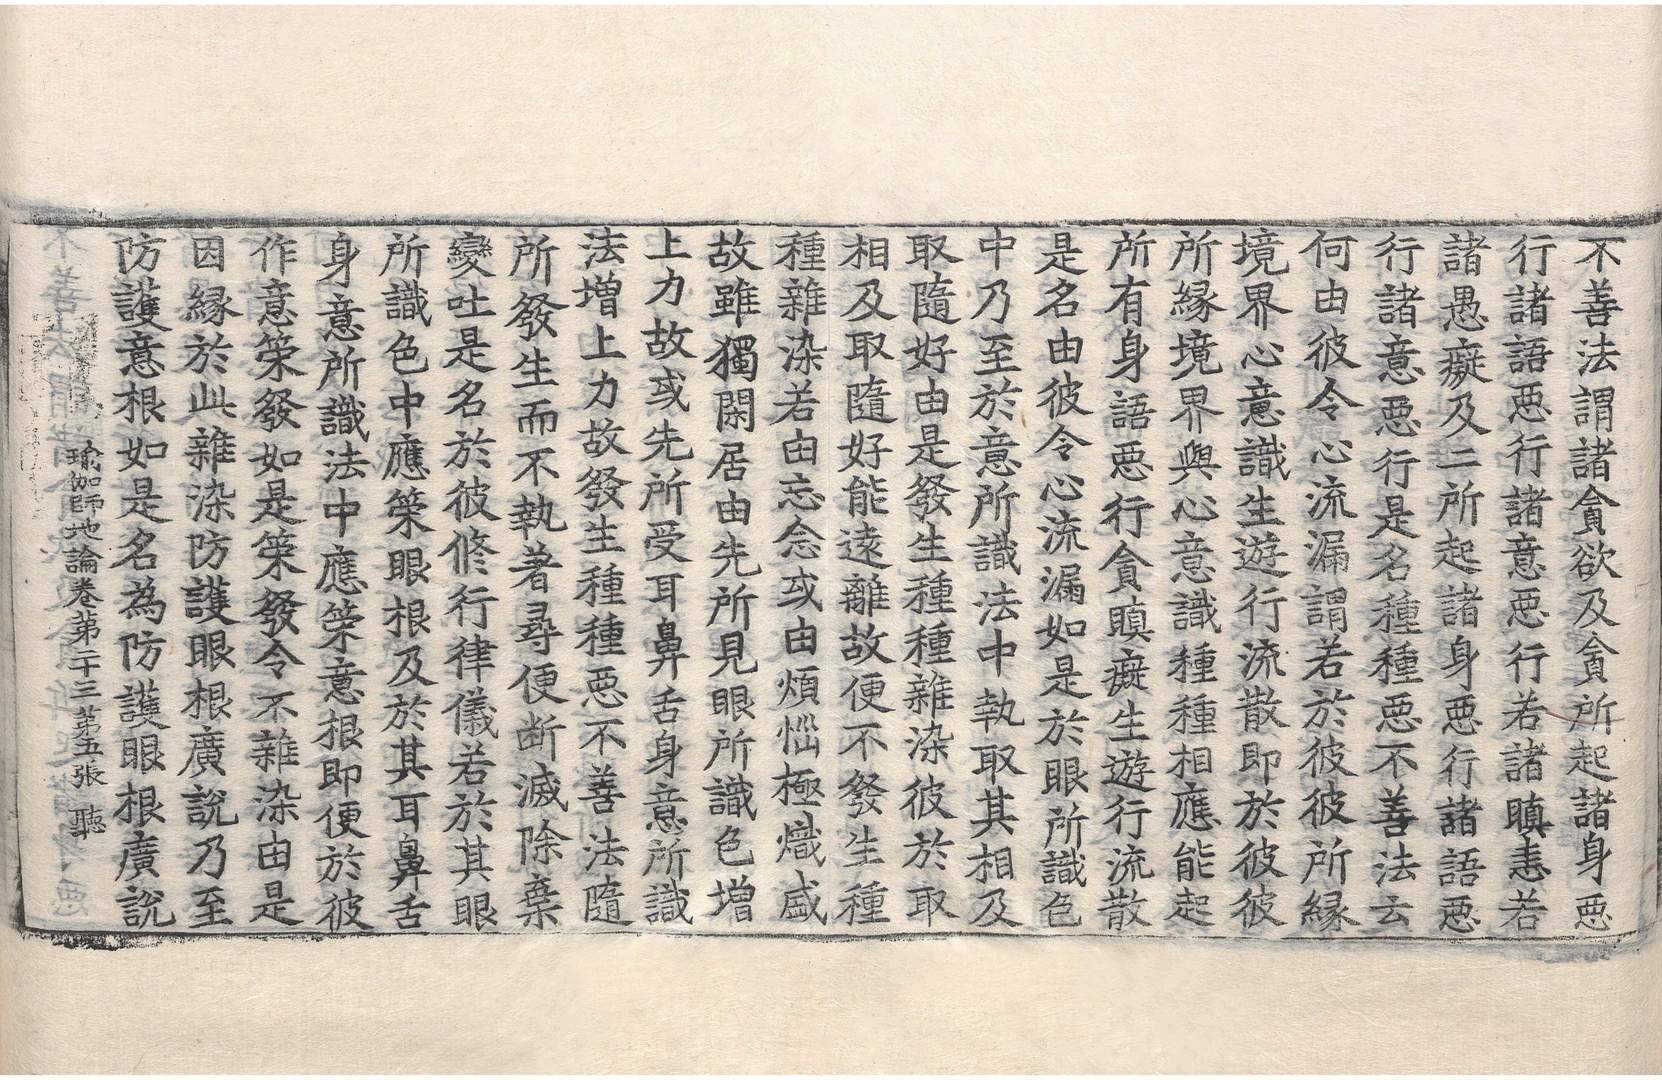 不善法謂諸貪欲及貪所起諸身惡
行諸語惡行諸意惡行若諸瞋恚若
諸愚癡及二所起諸身惡行諸語惡
行諸意惡行是名種種惡不善法云
何由彼令心流漏謂若於彼彼所緣
境界心意識生遊行流散即於彼彼
所緣境界與心意識種種相應能起
所有身語惡行貪瞋癡生遊行流散
是名由彼令心流漏如是於眼所識色
中乃至於意所識法中執取其相及
取隨好由是發生種種雜染彼於取
相及取隨好能遠離故便不發生種
種雜染若由忘念或由煩惱極熾盛
故雖獨閑居由先所見眼所識色增
上力故或先所受耳鼻舌身意所識
法增上力故發生種種惡不善法隨
所發生而不執著尋便断滅除棄
變吐是名於彼修行律儀若於其眼
所識色中應策眼根及於其耳鼻舌
身意所識法中應策意根即便於彼
作意策發如是策發令不雜染由是
因緣於此雜染防護眼根廣說乃至
防護意根如是名為防護眼根廣說
瑜伽師地論卷第二十三 第五張 聽